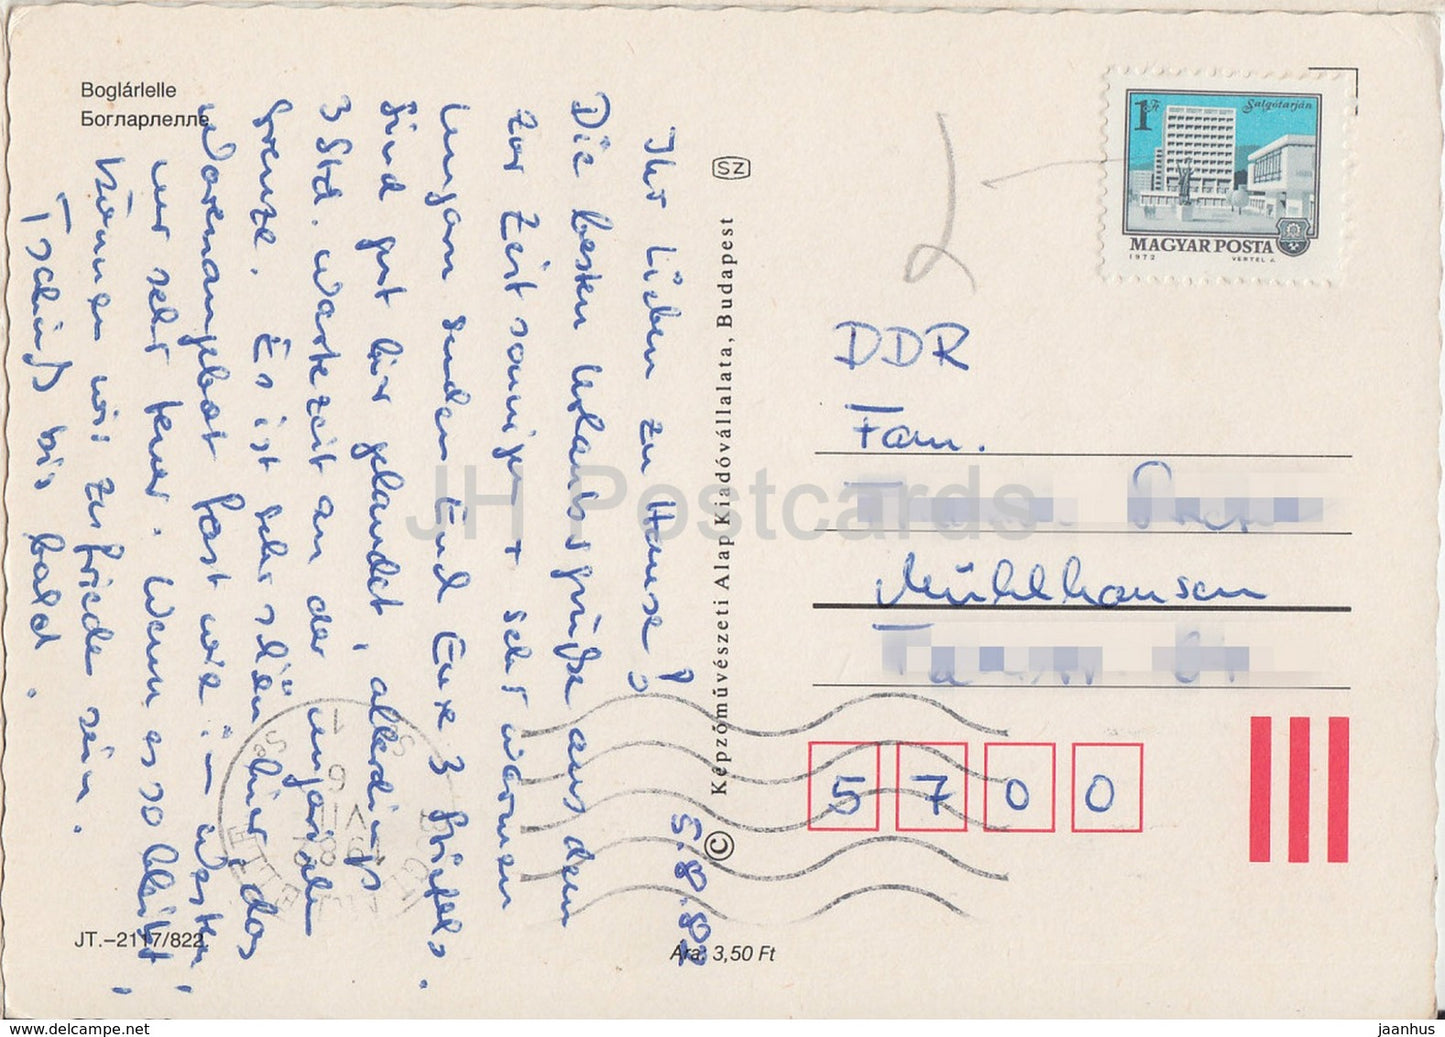 Boglárlelle
Богларлелле
5.8.82
Ihr Lieben zu Hause!
Die besten Urlaubsgrüße aus dem
zur Zeit sonnigen + sehr warmen
Ungarn senden Euch Eure 3 
Sind gut hier gelandet, allerdings
3 Std. Wartezeit an der ungarischen
Grenze. Es ist sehr schön hier, das
Warenangebot fast wie im Westen,
nur sehr teuer. Wenn es so bleibt,
können wir zufrieden sein.
Tschüß bis bald.
JT.-2117/822.
Ára: 3,50 Ft
SZ
© Képzőművészeti Alap Kiadóvállalata, Budapest
1 Ft Salgótarján
MAGYAR POSTA
1972 VERTEL J.
DDR
Fam.
Mühlhausen
5700
JH Postcards
www.delcampe.net
jaanhus